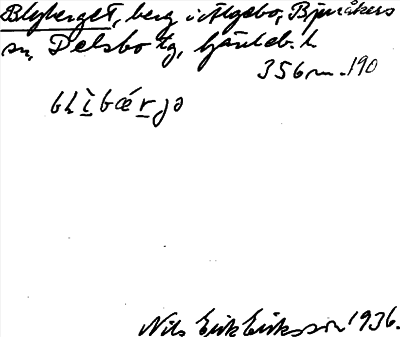 Blyberget, berg i Älgebo, Bjuråkers
sn, Delsbo tg, Gävleb. l.
356 m. 190
bl̀ibǽrjə
Nils Erik Eriksson 1936.